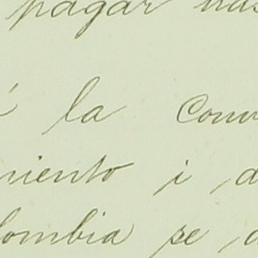 pagar
la Conv
miento i d
lombia se